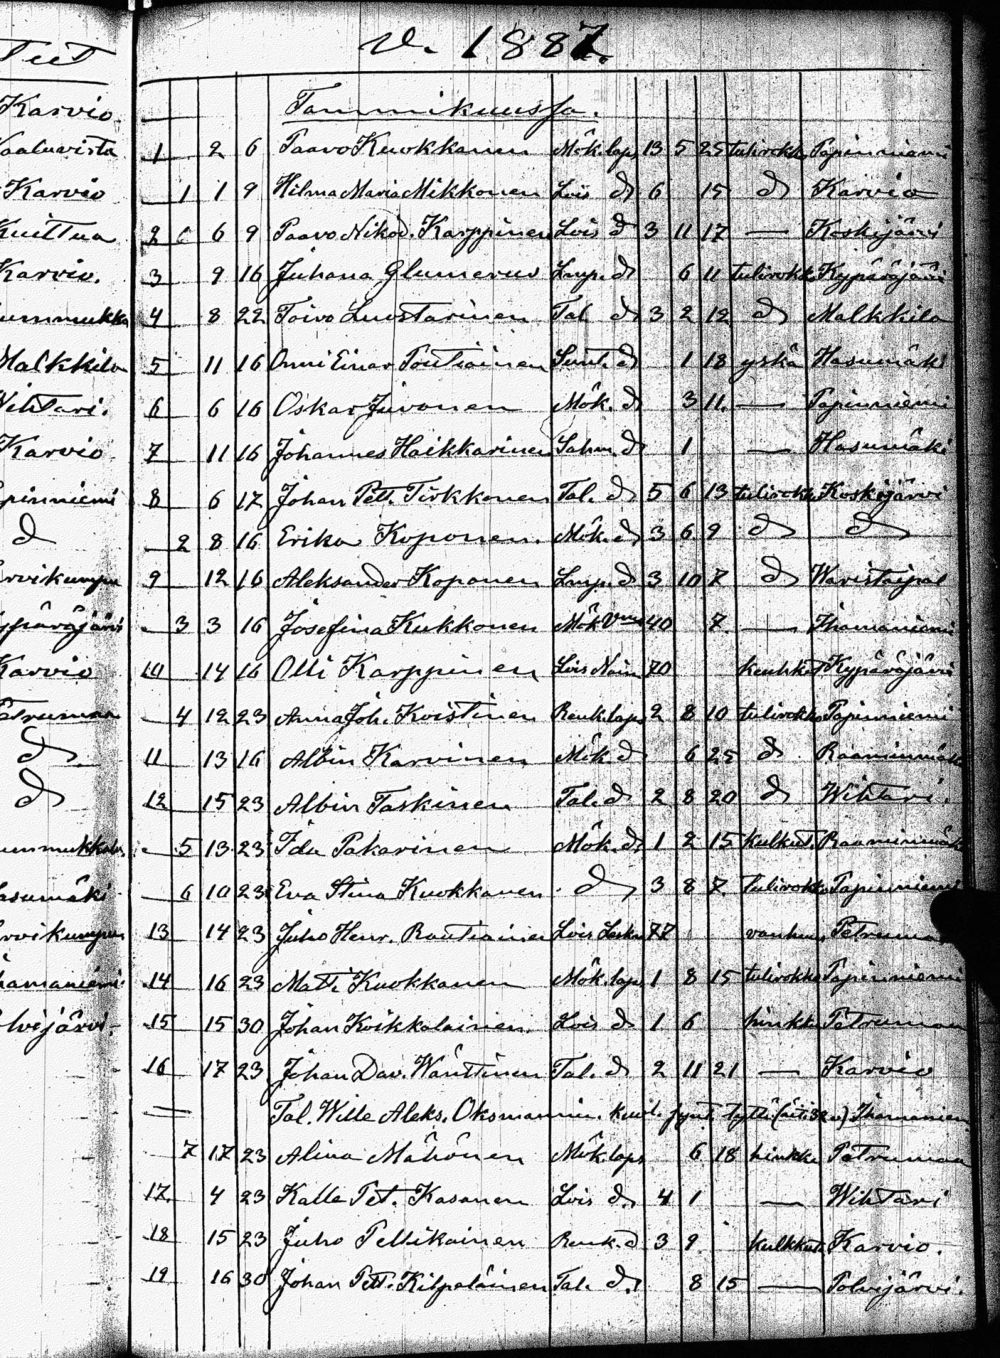 V. 1887.
Tammikuussa.
1 2 6 Paavo Kuokkanen Mök. laps 13 5 25 tulirokko Papinniemi
1 1 9 Hilma Maria Mikkonen Lois d 6 15 d Karvio
2 6 9 Paavo Nikod. Karppinen Lois d 3 11 17 — Koskijärvi
3 9 16 Juhana Glumerus Lmp. d 6 11 tulirokko Kypäräjärvi
4 8 22 Toivo Luostarinen Tal d 3 2 12 d Malkkila
5 11 16 Onni Einar Poutiainen d 1 18 yskä Hasumäki
6 6 16 Oskar Juvonen Mök. d 3 11. — Papinniemi
7 11 16 Johannes Haikkarinen d 1 — Hasumäki
8 6 17 Johan Pett. Tirkkonen Tal. d 5 6 13 tulirokko Koskijärvi
2 8 16 Erika Koponen. Mök. d 3 6 9 d d
9 12 16 Aleksander Koponen Lmp. d 3 10 7 d Waristaipal
3 3 16 Josefina Kukkonen Mök 40 7. — Ihamaniemi
10 14 16 Olli Karppinen Lois 70 Kypäräjärvi
4 12 23 Anna Joh. Koistinen Renk. laps 2 8 10 tulirokko Papinniemi
11 13 16 Albin Karvinen Mök. d 6 25 d Raaminmäki
12 15 23 Albin Taskinen Tal. d 2 8 20 d Wihtari.
5 13 23 Ida Pakarinen Mök. d 1 2 15 kulkut. Raaminmäki
6 10 23 Eva Stina Kuokkanen d 3 8 7 Tulirokko Papinniemi
13 14 23 Juho Henr. Rautiainen Lois Leski 77 vanhuus Petrumaa
14 16 23 Matti Kuokkanen Mök. laps 1 8 15 tulirokko Papinniemi
15 15 30 Johan Koikkalainen. Lois d 1 6 hinkku Petrumaa
16 17 23 Johan Dav. Wänttinen Tal. d 2 11 21 — Karvio
Tal. Wille Aleks. Oksmannin. kuol. synt. tyttö (äiti 32 v) Ihamaniem.
7 17 23 Alina Mähönen Mök laps 6 18 hinkku Petrumaa
17. 4 23 Kalle Pet. Kasanen Lois d. 4 1 — Wihtari
18 15 23 Juho Pellikainen Renk. d 3 9. kulkkut. Karvio.
19 16 30 Johan Pett. Kilpeläinen Tal. d. 8 15 — Polvijärvi.